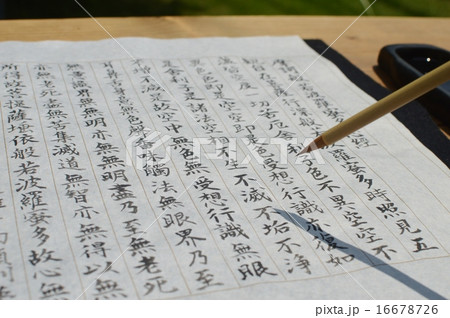 心経
羅蜜多時照見五
色不異空空不
受想行識亦復如
是舎利子是諸法空相不生不滅不垢不浄
不増不減是故空中無色無受想行識無眼
耳鼻舌身意無色声香味触法無眼界乃至
無意識界無無明亦無無明盡乃至無老死
亦無老死盡無苦集滅道無智亦無得以無
所得故菩提薩埵依般若波羅蜜多故心無
16678726